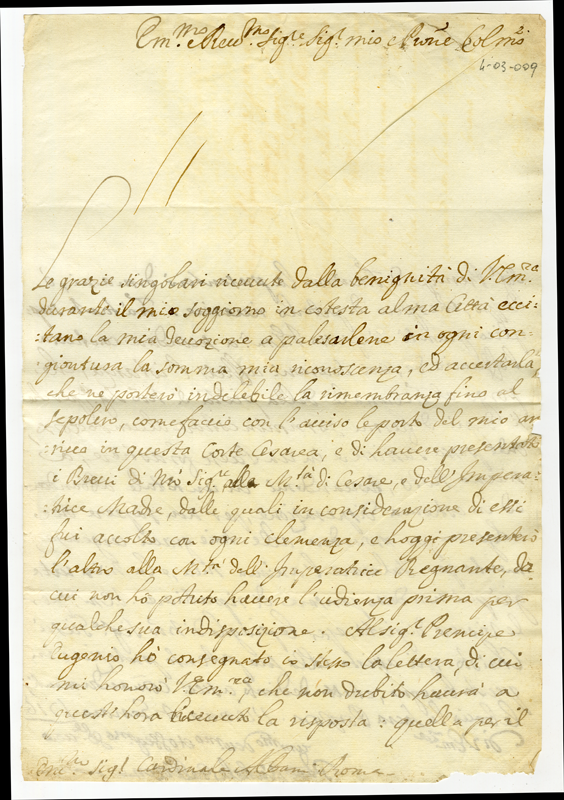 Em.mo e Reu.mo Sig.re Sig.r mio e Prone Colmo
4-03-009
Le grazie singolari riceuute dalla benignità di V. Em.za
durante il mio soggiorno in cotesta alma Città ecci-
:tano la mia deuozione a palesarlene in ogni con-
:giontura la somma mia riconoscenza, ed accertarla,
che ne porterò indelebile la rimembranza fino al
sepolcro, come faccio con l'auiso le porto del mio ar-
riuo in questa Corte Cesarea, e di hauere presentato
i Breui di Nro Sig.re alla M.tà di Cesare, e dell'Impera-
:trice Madre, dalle quali in considerazione di essi
fui accolto con ogni clemenza, e hoggi presenterò
l'altro alla M.tà dell'Imperatrice Regnante, da
cui non hò potuto hauere l'udienza prima per
qualche sua indisposizione. Al sig.r Prencipe
Eugenio hò consegnato io stesso la lettera, di cui
mi honorò V. Em.za, che non dubito haurà a
quest'hora riceuuto la risposta: quella per il
Sig.r Cardinale Albani Roma